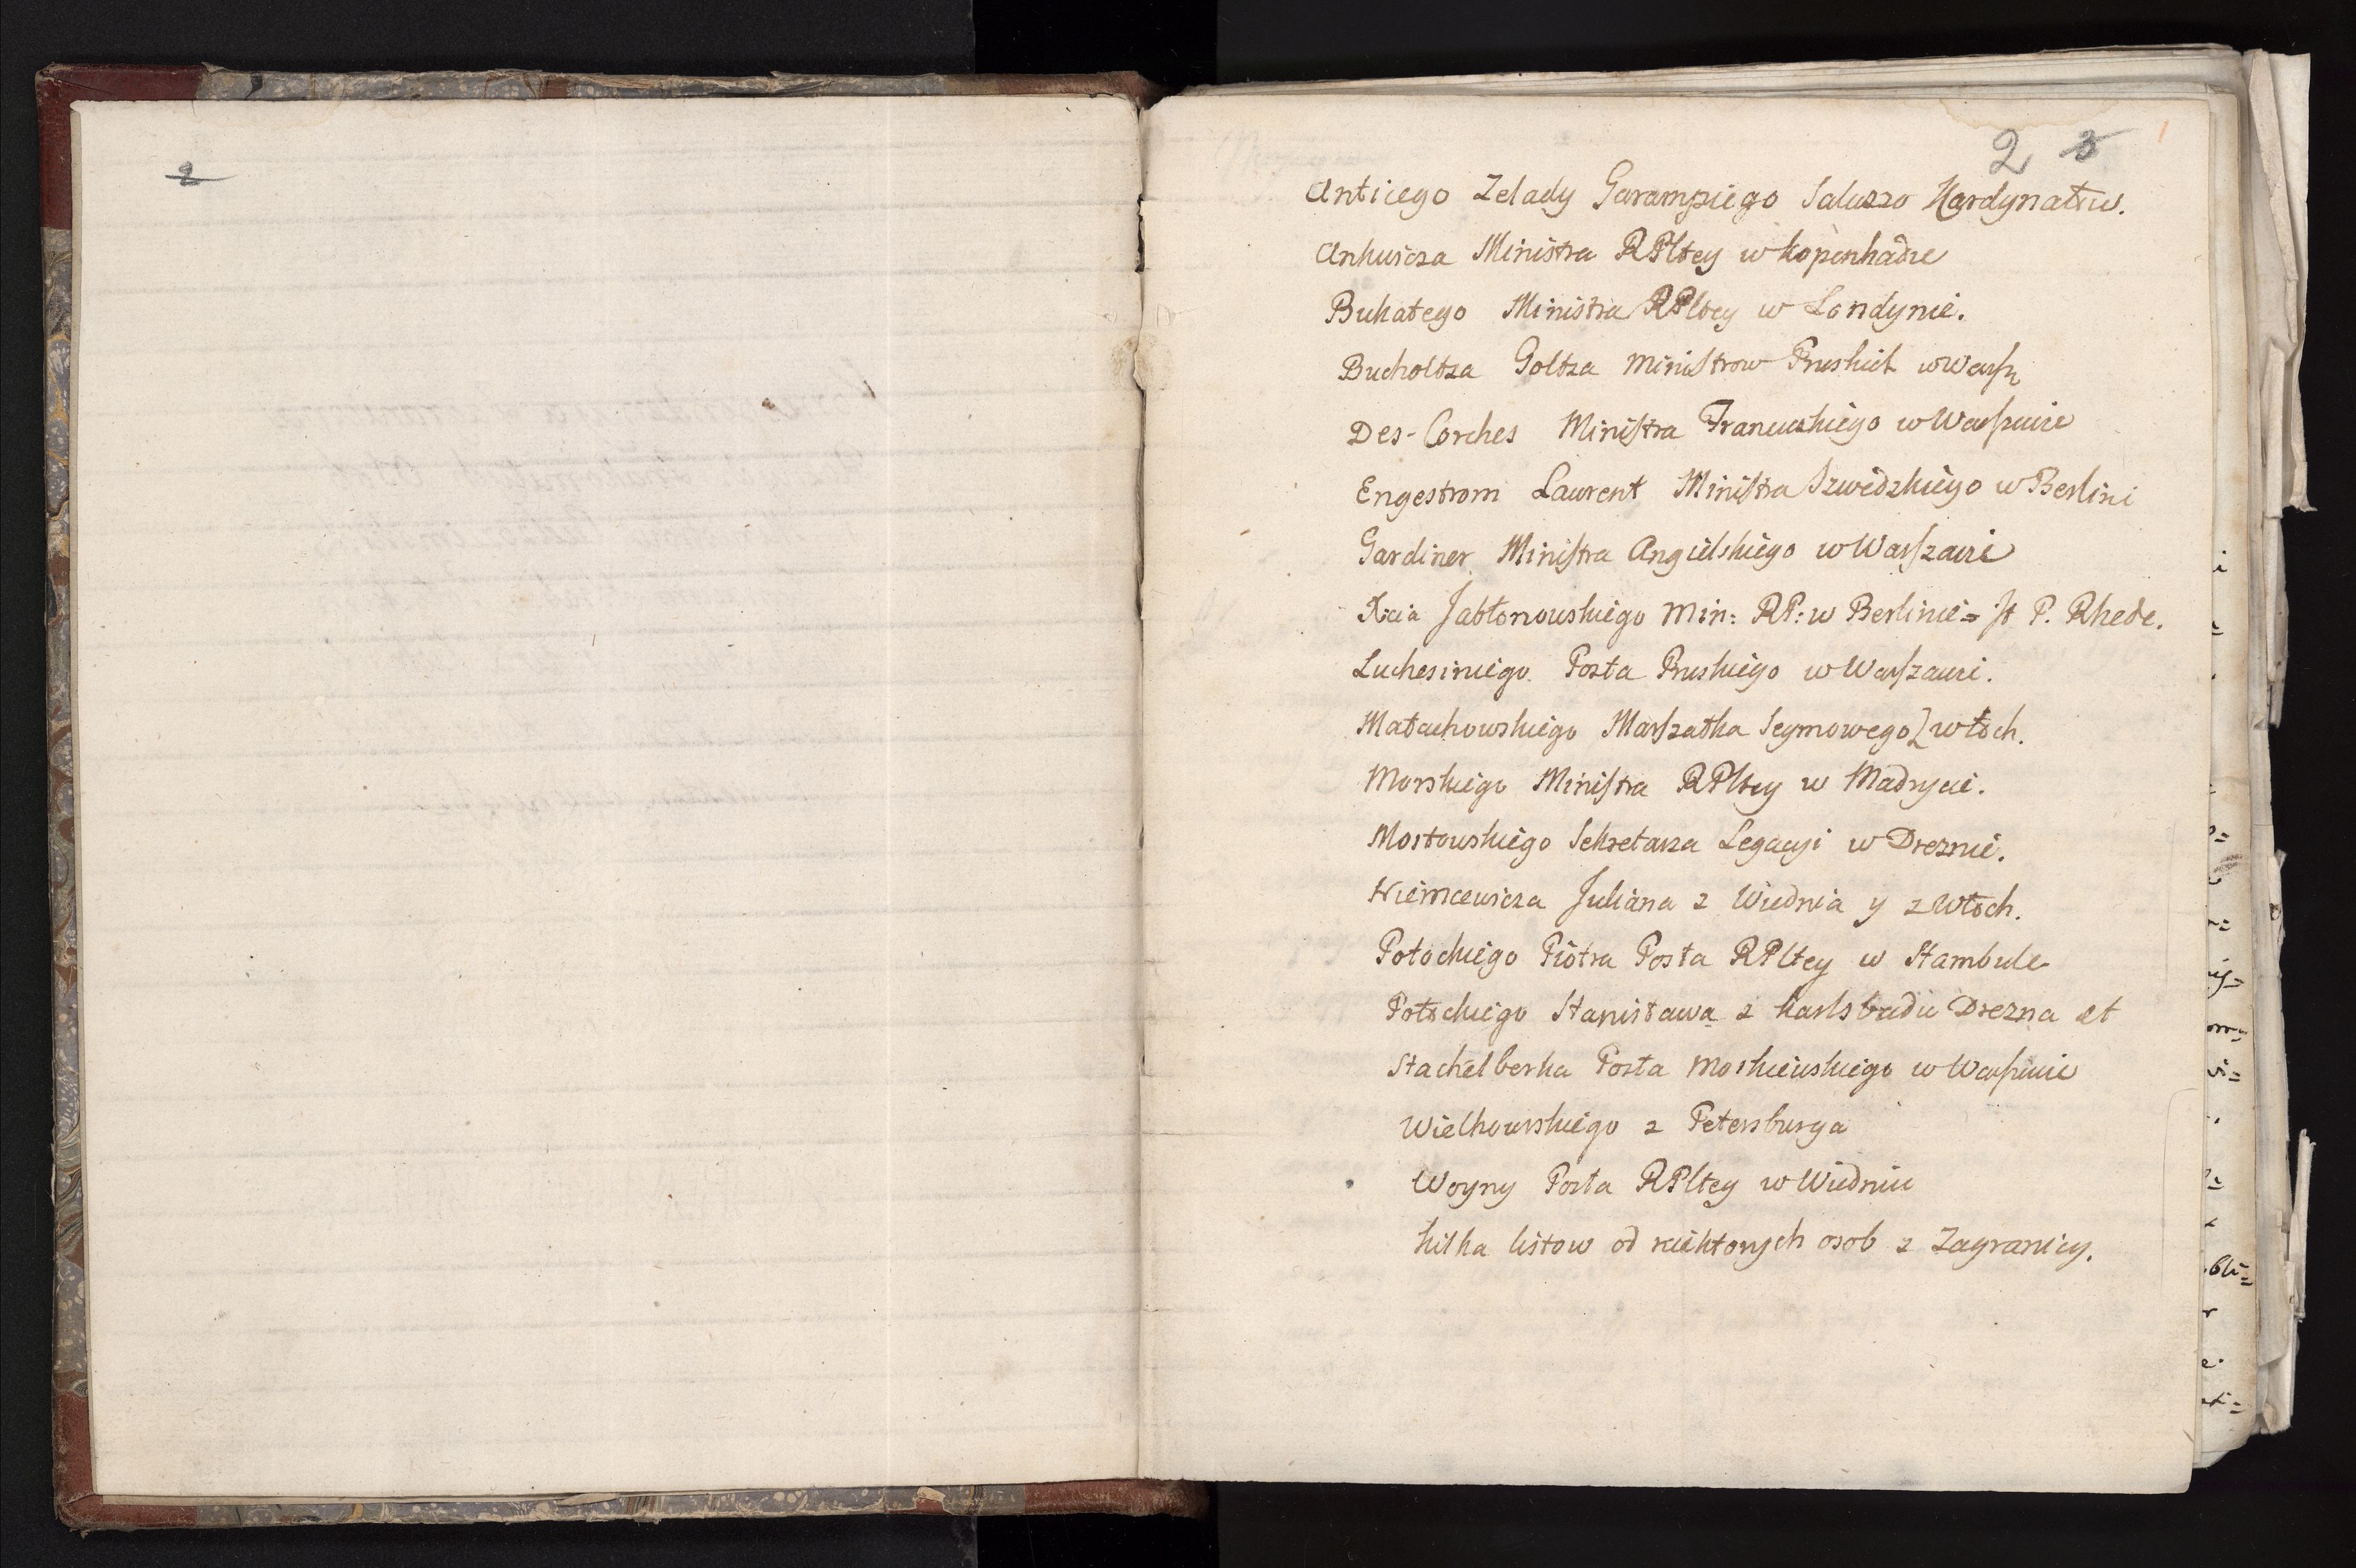 2
2 3
Anticego Zelady Garampiego Saluzzo Kardynałów.
Ankwicza Ministra RPltey w kopenhadze
Bukatego Ministra RPltey w Londynie.
Bucholtza Goltza Ministrow Pruskich w Warsz
Des-Corches Ministra Francuskiego w Warszawie
Engestrom Laurent Ministra Szwedzkiego w Berlini
Gardiner Ministra Angielskiego w Warszawie
Xcia Jabłonowskiego Min: RP: w Berlinie = P. Rhede.
Luchesiniego Posła Pruskiego w Warszawie.
Małachowskiego Marszałka Seymowego z włoch.
Morskiego Ministra RPltey w Madrycie.
Mostowskiego Sekretarza Legacyi w Dreznie.
Niemcewicza Juliana z Wiednia y z Włoch.
Potockiego Piotra Posła RPltey w Stambule
Potockiego Stanisława z Karlsbadu Drezna et
Stachelberka Posła Moskiewskiego w Warszawie
Wielhourskiego z Petersburga
Woyny Posła RPltey w Wiedniu
kilka listow od niektorych osob z Zagranicy.